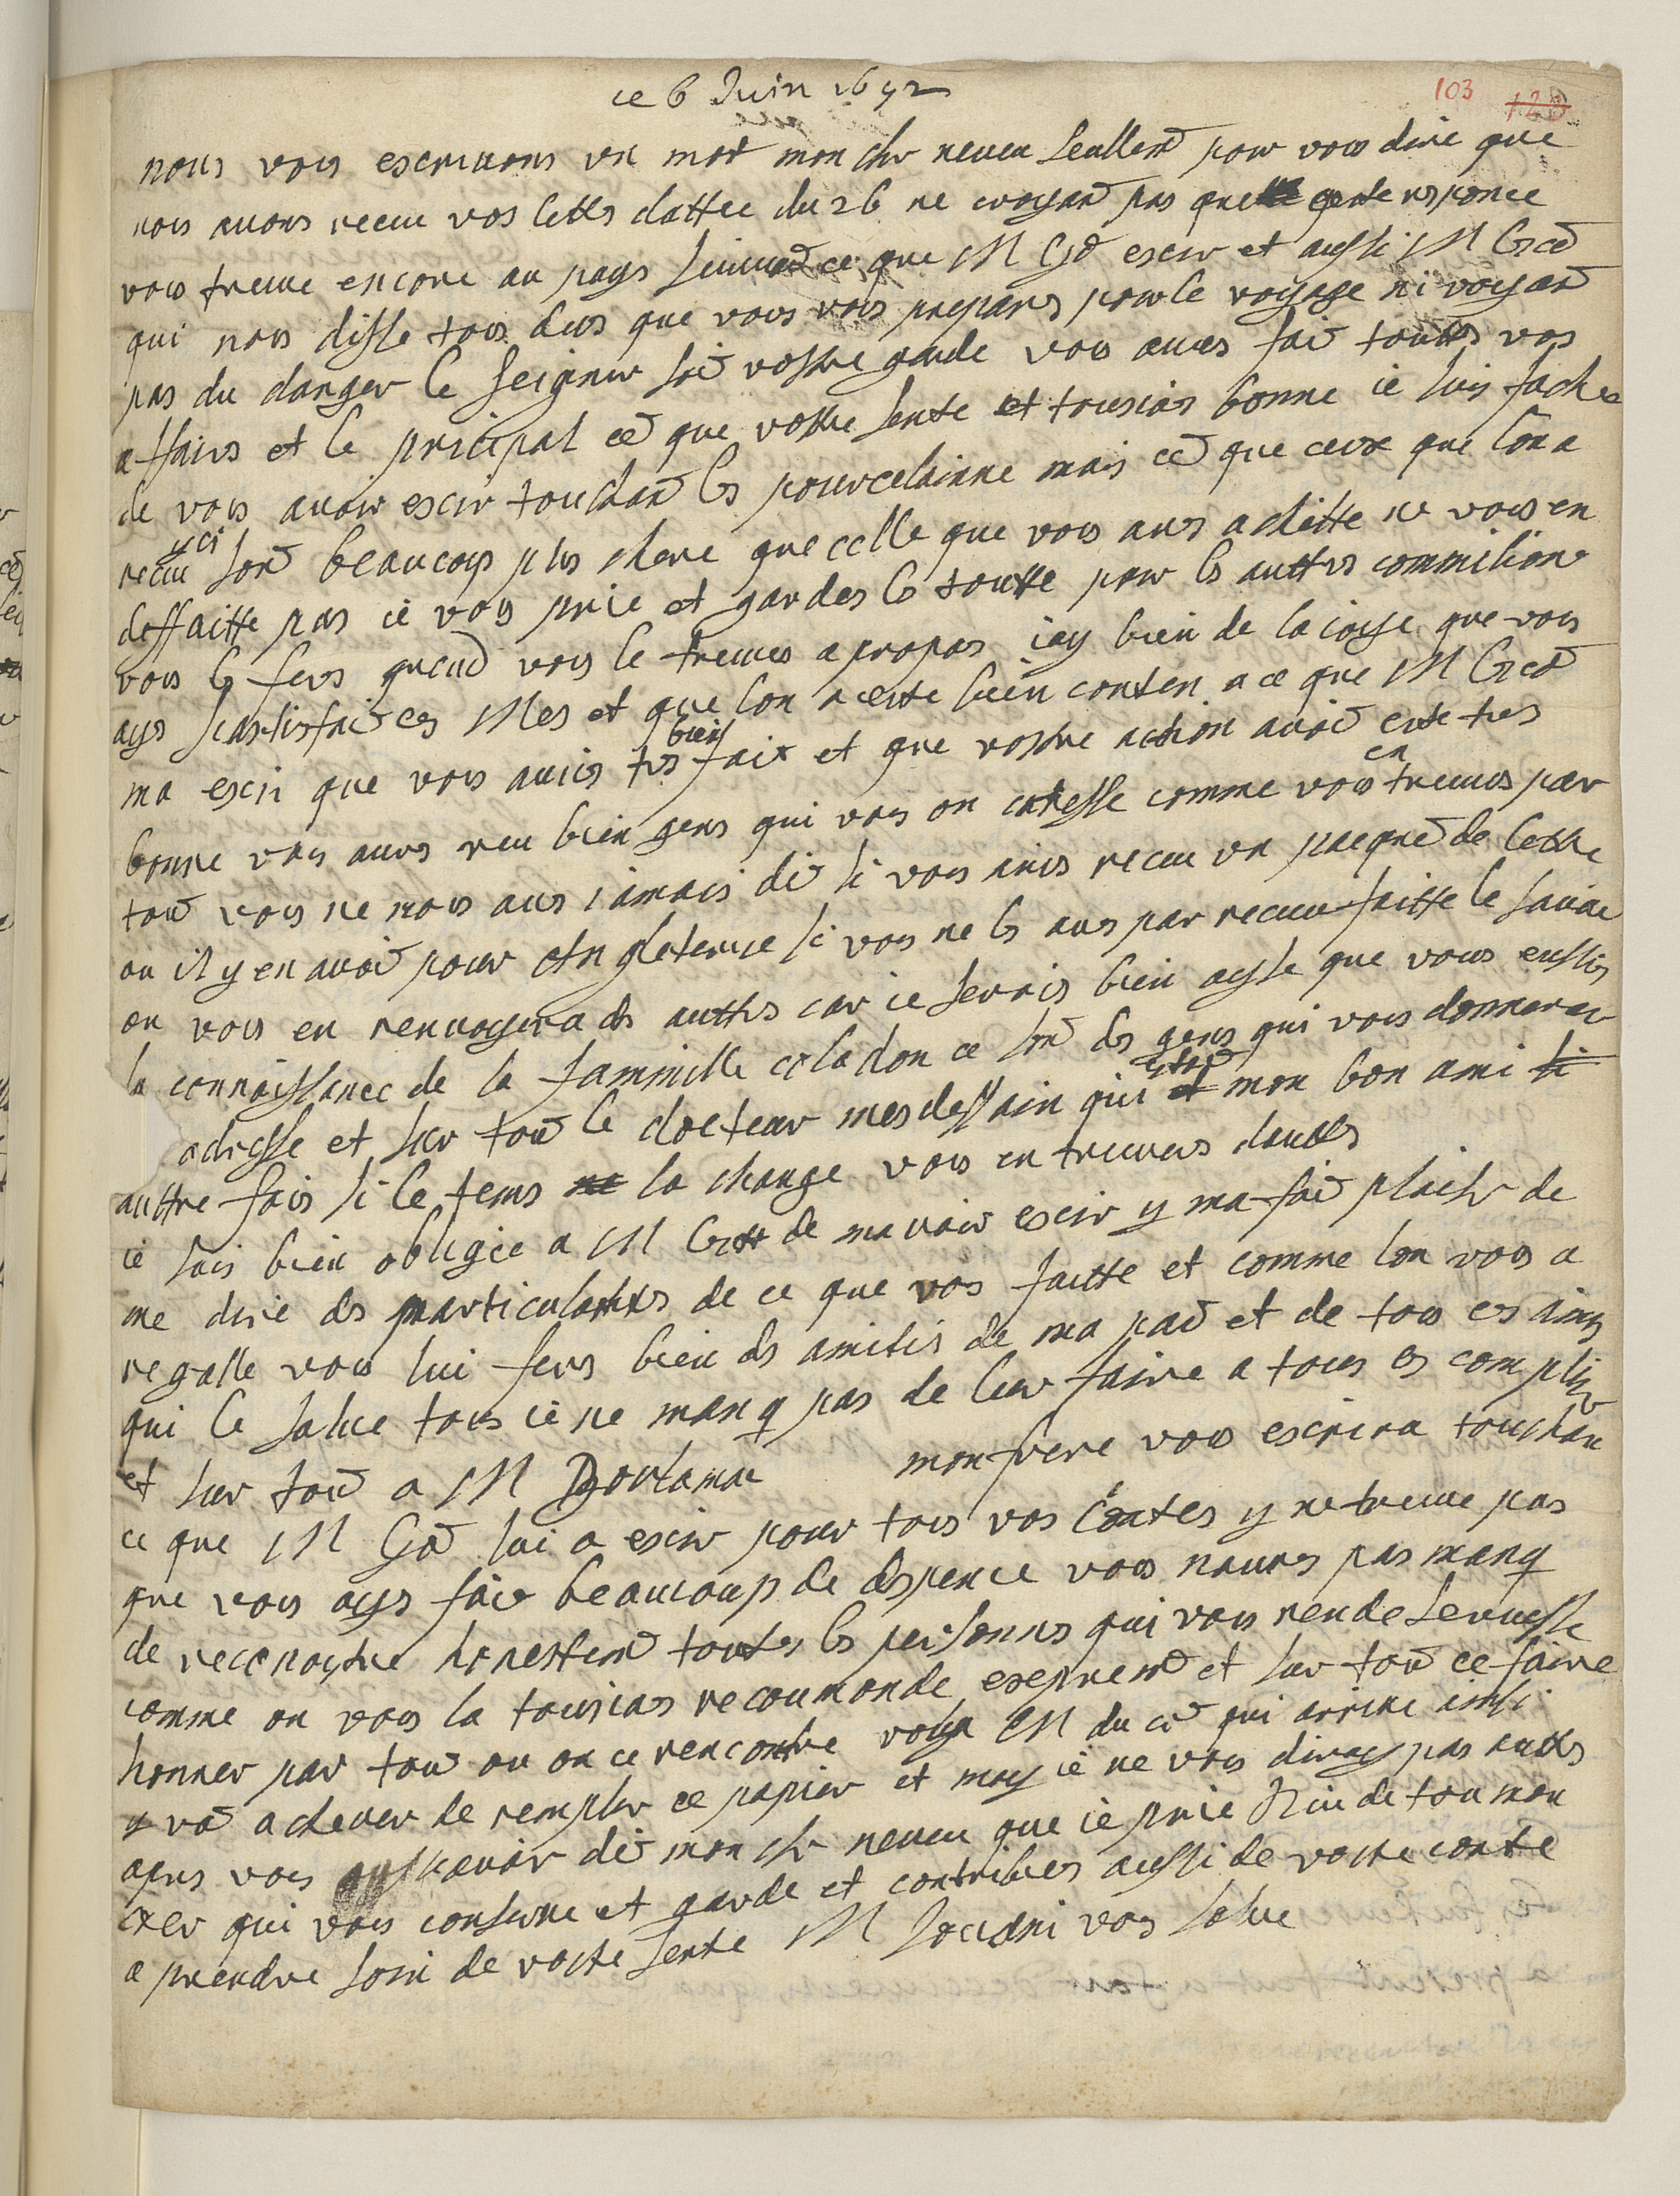 ce 6 Juin 1692
103 123
nous vous escriuons vn mot mon cher neueu seullem̃ pour vous dire que
nous auons receu vos lettrs dattee du 26 ne croyan̄ pas que cete responce
vous treuue encore au pays suiuan̄ ce que M escir et aussi M
qui nous disse tous deus que vous vous prepares pour le voyage ni voyan̄
pas du danger le seigneur soi vostre garde vous aues fai touttes vos
affairs et le pricipal cē que vostre sente et tousiars bonne ie suis fachee
de vous auoir escir touchan̄ ls pourcelainne mais cē que ceux que lon a
receu yci son̄ beaucoup plus chere que celle que vous aues achette ne vous en
deffaitte pas ie vous prie et gardes ls toutte pour ls auttrs commition
vous ls fers quend vous le treuues a propos iay bien de la ioye que vous
ays sastisfai ces Mes et que lon a este bien conten a ce que M
ma escri que vous auies trs bien fait et que vostre action auoi este tres
bonne vous aues veu bien gens qui vous on caresse comme vous en treuues par
tou vous ne nous aues iamais di si vous aues receu vn pacquē de lettre
ou il y en auoi pour Angleterre si vous ne ls aues pas receu faitte le sauoir
on vous en renuoyera ds auttrs car ie serois bien aysse que vous eussies
la connoissance de la famminlle coladon ce son̄ ds gens qui vous donneron
adresse et sur tou le docteur mesdessain qui et estoi mon bon ami si
auttre fois si le tems ne la change vous en treuueres dauttrs
ie suis bien obligee a M de mauoir escir y ma fai plaisir de
me dire ds particularites de ce que vos faitte et comme lon vous a
regalle vous lui fers bien ds amitis de ma par̄ et de tous es amys
qui le salue tous ie ne manq pas de leur faire a tous es complim
et sur tou a M mon frere vous escrira touchan
ce que M lui a escir pour tous vos contes y ne treuue pas
que vous ays fai beaucoup de despence vous naures pas manq
de reconoystre honestem̄ toutes ls persones qui vous rende seruisse
comme on vous la tousias recoumonde exepresem̄ et sur tou ce faire
honner par tou ou on ce rencontre voyla M du cē qui arriue insi
y va acheuer de remplir ce papier et moy ie ne vous diray pas auttrs
apres vous auoir di mon cher neueu que ie prie Dieu de tou mon
cxer qui vous conserue et garde et contribues aussi de voste conte
a prendre soin de voste sente M vous salue